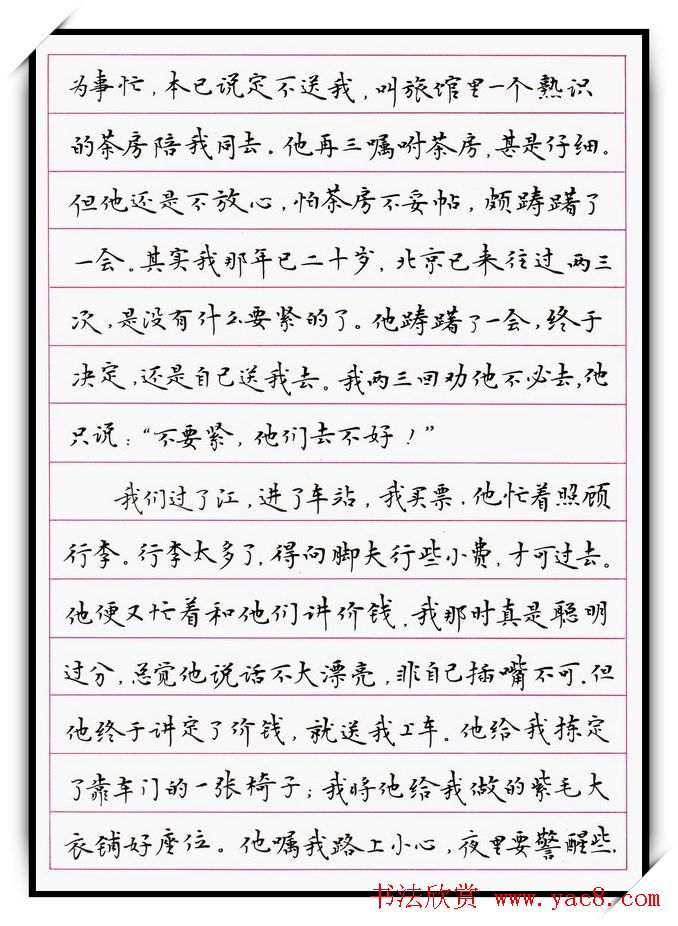 为事忙，本已说定不送我，叫旅馆里一个熟识
的茶房陪我同去。他再三嘱咐茶房，甚是仔细。
但他还是不放心，怕茶房不妥帖，颇踌躇了
一会。其实我那年已二十岁，北京已来往过两三
次，是没有什么要紧的了。他踌躇了一会，终于
决定，还是自己送我去。我两三回劝他不必去，他
只说：“不要紧，他们去不好！”
我们过了江，进了车站，我买票，他忙着照顾
行李。行李太多了，得向脚夫行些小费，才可过去。
他便又忙着和他们讲价钱，我那时真是聪明
过分，总觉他说话不大漂亮，非自己插嘴不可。但
他终于讲定了价钱，就送我上车。他给我拣定
了靠车门的一张椅子；我将他给我做的紫毛大
衣铺好座位。他嘱我路上小心，夜里要警醒些，
书法欣赏 www.yac8.com